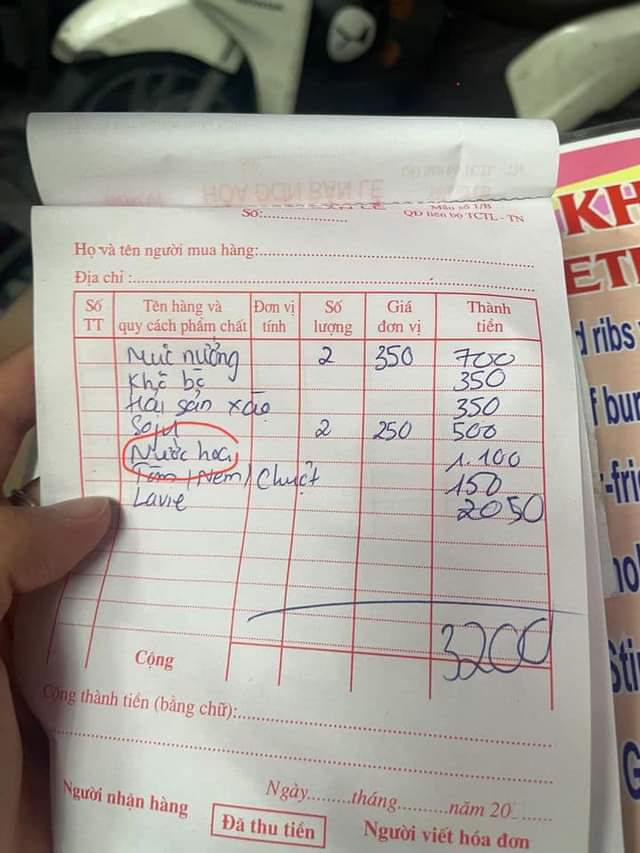 Số:....................
Mẫu số 1/B
QĐ liên bộ TCTL - TN
Họ và tên người mua hàng:
Địa chỉ :
Số TT Tên hàng và quy cách phẩm chất Đơn vị tính Số lượng Giá đơn vị Thành tiền
Mực nướng 2 350 700
Khô bò 350
Hải sản xào 350
Soju 2 250 500
Nước hoa 1.100
Tăm / Nem / Chuột 150
Lavie 2050
3200
Cộng
Cộng thành tiền (bằng chữ):
Ngày........tháng.........năm 20
Người nhận hàng
Đã thu tiền
Người viết hóa đơn
KH
ETI
d ribs
f bur
-frie
Sti
G